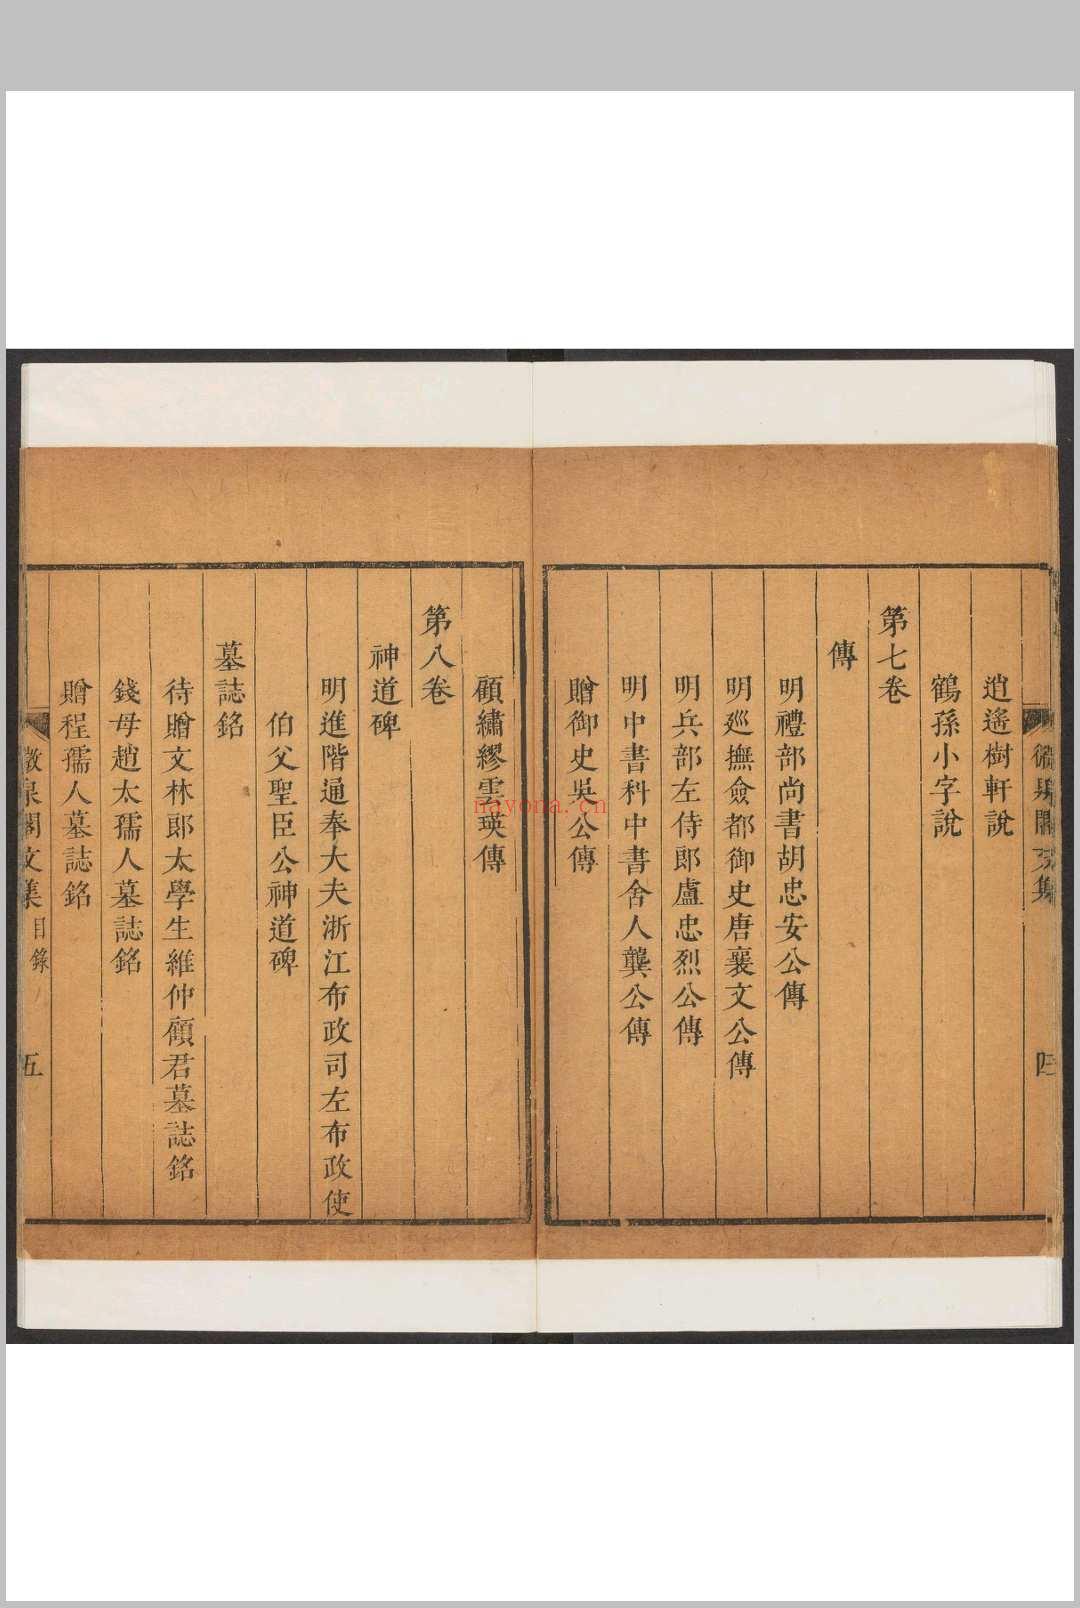 逍遙樹軒說
鶴孫小字說
第七卷
傳
明禮部尚書胡忠安公傳
明廵撫僉都御史唐襄文公傳
明兵部左侍郎盧忠烈公傳
明中書科中書舍人龔公傳
贈御史吳公傳
顧繡繆雲瑛傳
第八卷
神道碑
明進階通奉大夫浙江布政司左布政使
伯父聖臣公神道碑
墓誌銘
待贈文林郎太學生維仲顧君墓誌銘
錢母趙太孺人墓誌銘
贈程孺人墓誌銘
閣文集 目錄 五
nayona.cn